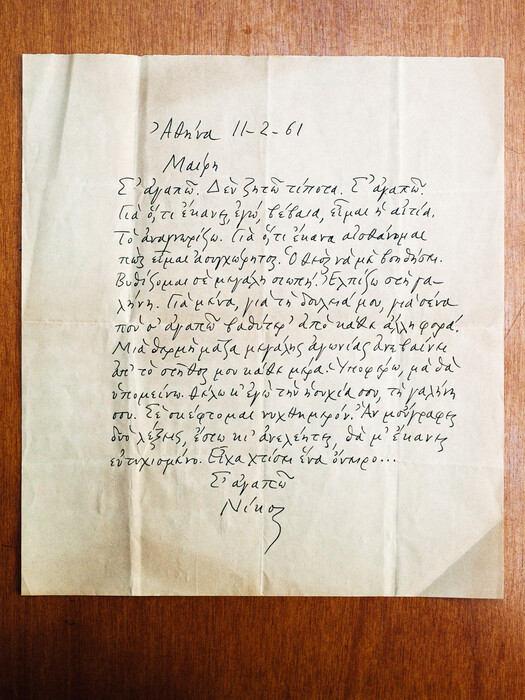 Ἀθήνα 11-2-61
Μαίρη
Σ' ἀγαπῶ. Δὲν ζητῶ τίποτα. Σ' ἀγαπῶ.
Γιὰ ὅ,τι ἔκανες, ἐγώ, βέβαια, εἶμαι ἡ αἰτία.
Τὸ ἀναγνωρίζω. Γιὰ ὅ,τι ἔκανα αἰσθάνομαι
πὼς εἶμαι ἀσυγχώρητος. Ὁ θεὸς νὰ μὲ βοηθήσει.
Βυθίζομαι σὲ μεγάλη σιωπή. Ἐλπίζω στὴ γα-
λήνη. Γιὰ μένα, γιὰ τὴ δουλειά μου, γιὰ σένα
ποὺ σ' ἀγαπῶ βαθύτερ' ἀπὸ κάθε ἄλλη φορά.
Μιὰ θερμὴ μάζα μεγάλης ἀγωνίας ἀνεβαίνει
ἀπ' τὸ στῆθος μου κάθε μέρα. Ὑποφέρω, μὰ θὰ
ὑπομείνω. Θέλω κ' ἐγὼ τὴν ἡσυχία σου, τὴ γαλήνη
σου. Σὲ σκέφτομαι νυχθημερόν. Ἂν μοῦγραφες
δυὸ λέξεις, ἔστω κι' ἀνελέητες, θὰ μ' ἔκανες
εὐτυχισμένο. Εἶχα χτίσει ἕνα ὄνειρο...
Σ' ἀγαπῶ
Νίκος